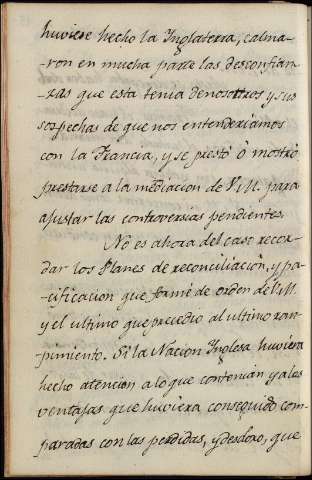 huviere hecho la Inglaterra, calma-
-ron en mucha parte las desconfian-
-zas que esta tenia denosotros y sus
sospechas de que nos entenderiamos
con la Francia, y se prestó ò mostró
prestarse a la mediacion de V.M. para
ajustar las controversias pendientes.
No es ahora del caso recor-
dar los Planes de reconciliacion, y pa-
-cificacion que formé de orden de V.M.
y el ultimo que precedio al ultimo rom-
-pimiento. Si la Nacion Inglesa huviera
hecho atencion a lo que contenian y a las
ventajas que huviera conseguido com-
paradas con las perdidas, y desdoro, que